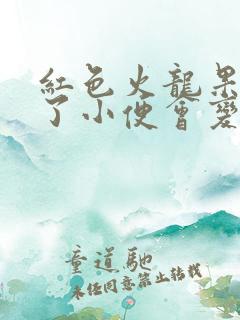 紅色火龍果
了小便會變
童道馳
未经同意禁止转载